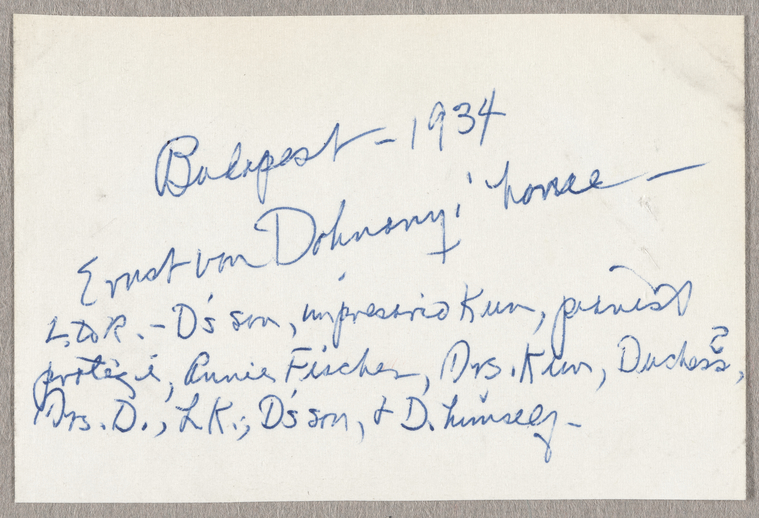 Budapest - 1934
Ernst von Dohnanyi' house -
L. to R. - D's son, impresario Kun, pianist
protégé, Annie Fischer, Mrs. Kun, Duchess ?,
Mrs. D., L.K.; D's son, & D. himself -